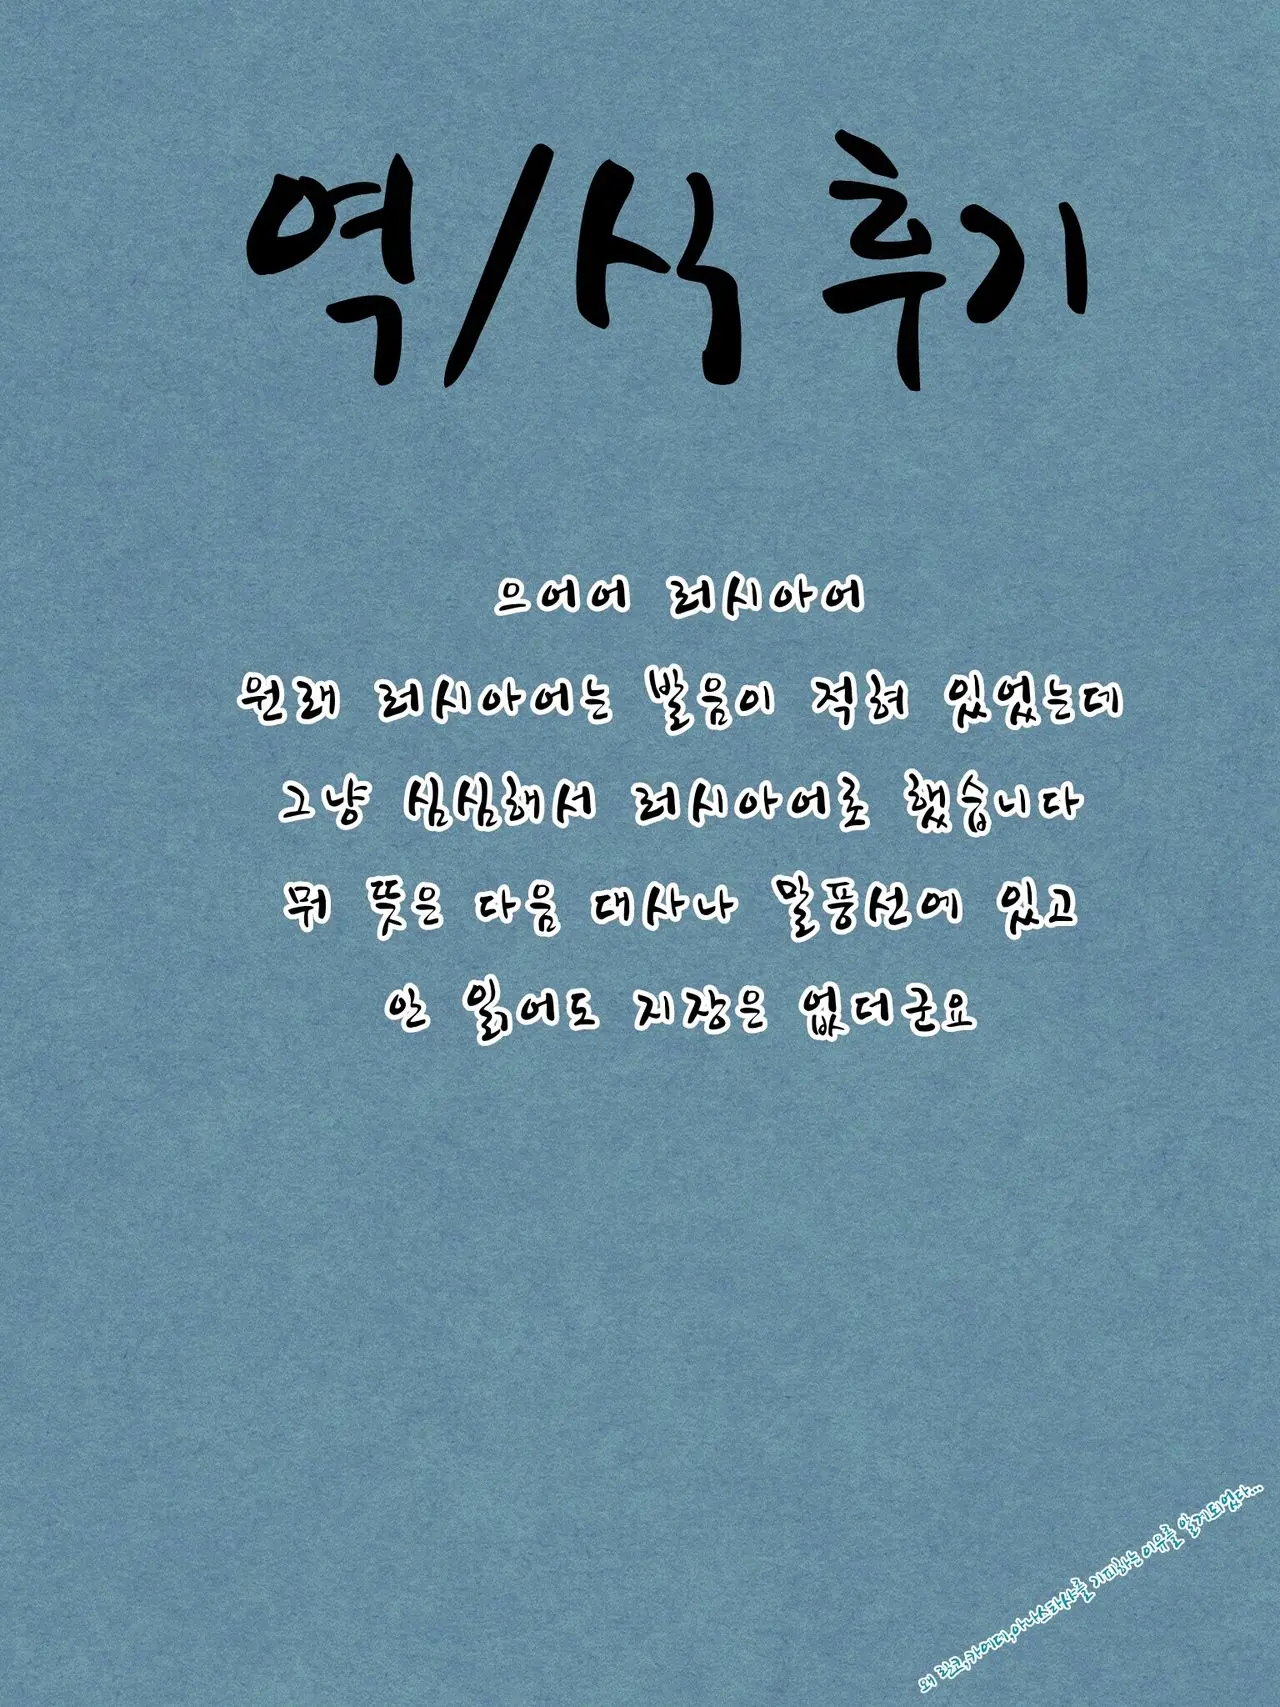 역/식 후기
으어어 러시아어
원래 러시아어는 발음이 적혀 있었는데
그냥 심심해서 러시아어로 했습니다
뭐 뜻은 다음 대사나 말풍선에 있고
안 읽어도 지장은 없더군요
왜 란코,카에데,아나스타샤를 기피하는 이유를 알게되었다...